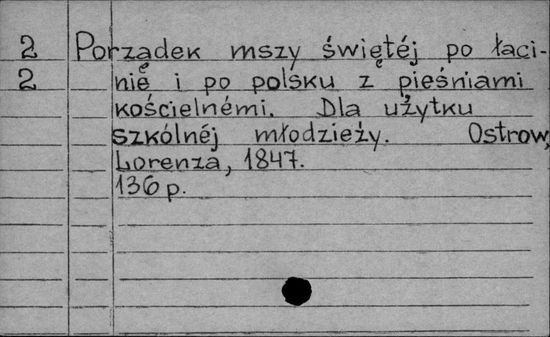 2 Porządek mszy świętéj po łaci-
2 nię i po polsku z pieśniami
kościelnémi. Dla użytku
szkólnéj młodzieży. Ostrow,
Lorenza, 1847.
136 p.